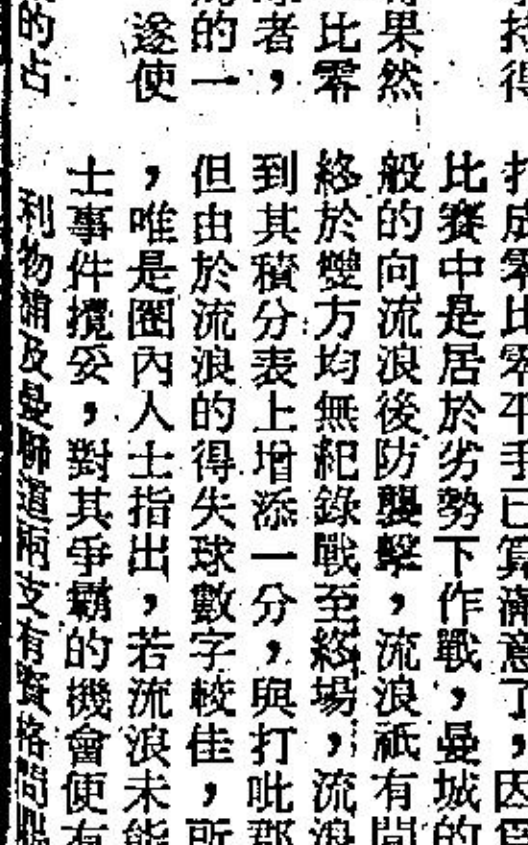 持得
打成零比零平手已算滿意了，因爲
果然
比賽中是居於劣勢下作戰，曼城的
般的向流浪後防襲擊，流浪祇有間
比零
終於雙方均無紀錄戰至終場，流浪
者，
到其積分表上增添一分，與打吡郡
的一
但由於流浪的得失球數字較佳，所
遂使
，唯是圈內人士指出，若流浪未能
士事件攪妥，對其爭霸的機會便有
的占
利物浦及曼聯這兩支有資格問鼎